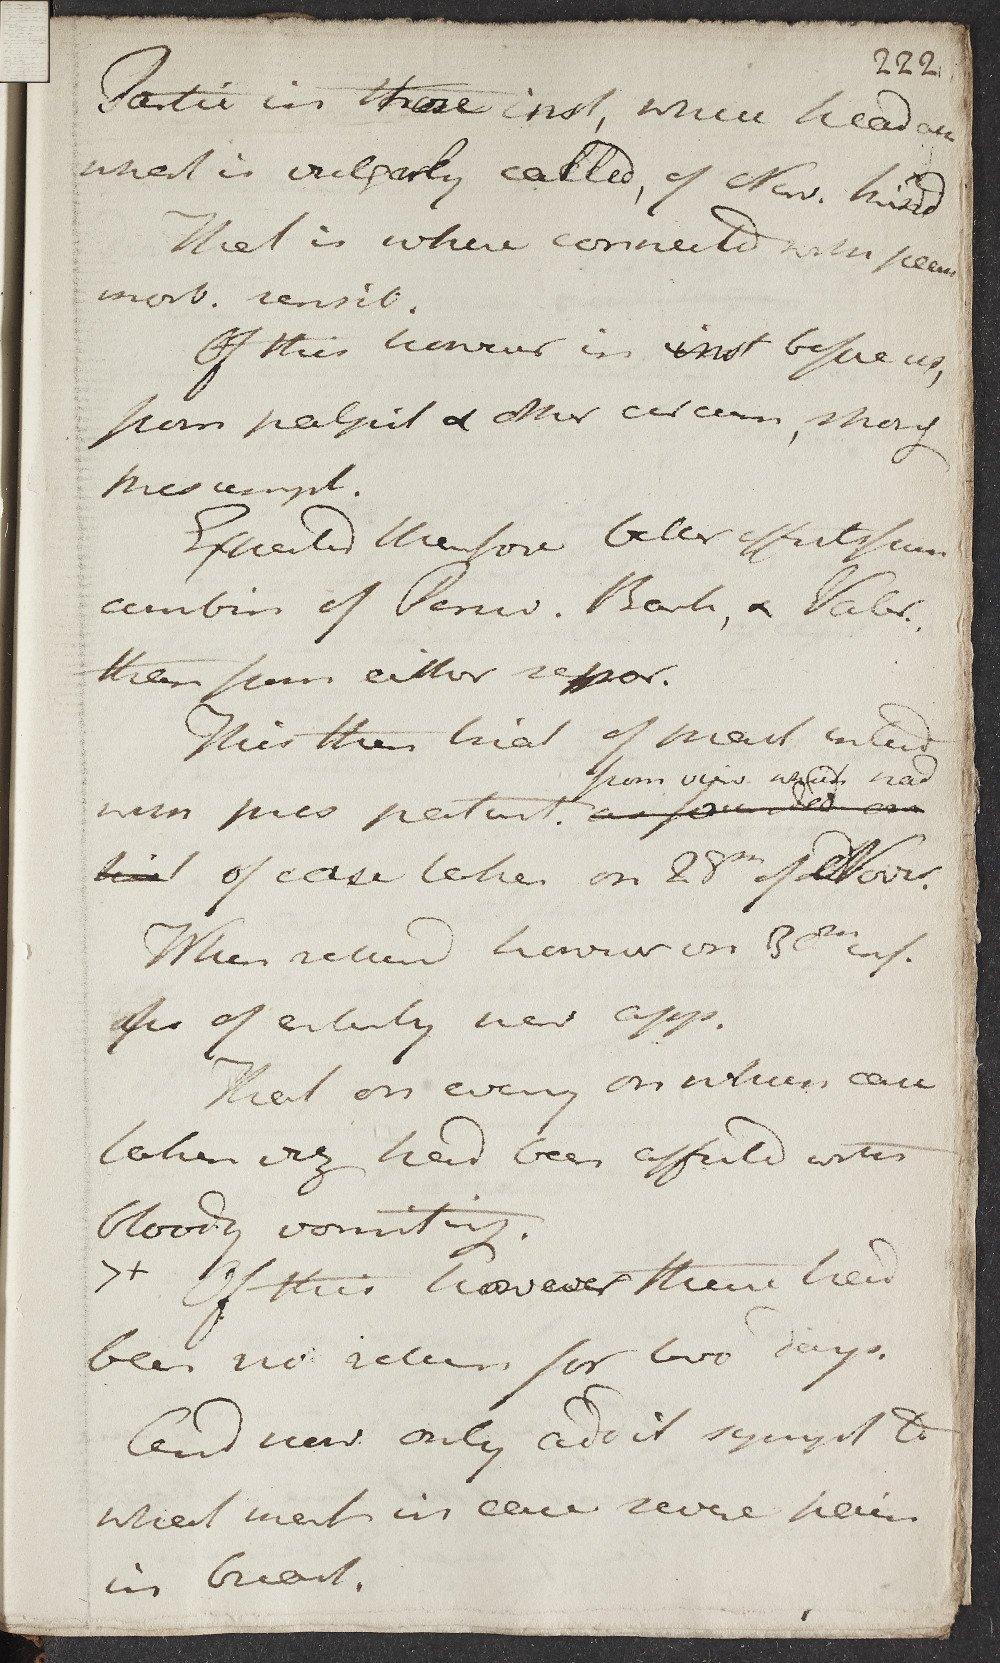 222
Partic in those inst, when head ach
what is vulgarly called, of Nerv. kind
That is where connected with pecu
morb. sensib.
Of this however in inst before us,
from palpit & other circum, strong
presumpt.
Expected therefore better effects from
combin of Peruv. Bark, & Valer.,
than from either separ.
This then trial of pract
with pres patient.
from view which had
as founded on
of case taken on 28th of Novr.
When return'd however on 30th
of entirely new app.
That on eveng on which case
taken viz had been affected with
bloody vomiting.
Of this however there had
been no return for two days.
And now only addit sympt to
what ment in case severe pain
in breast.